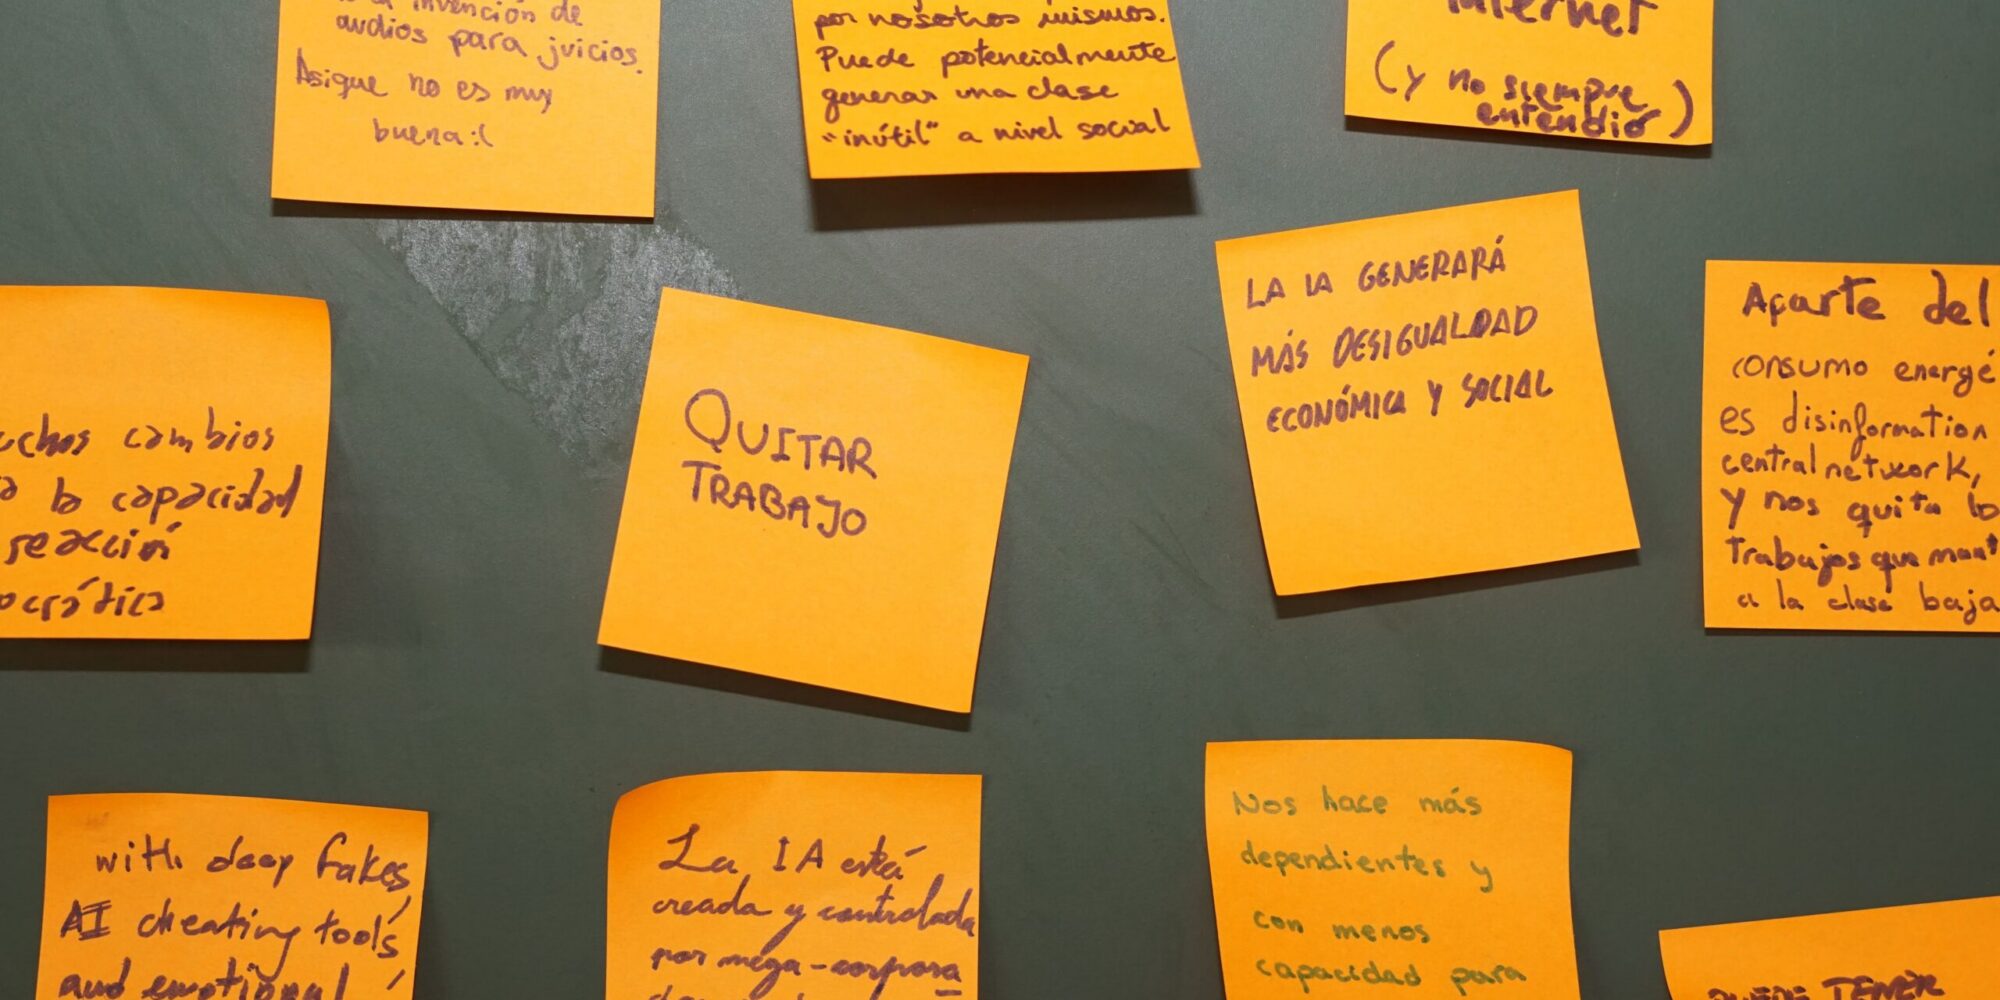 invención de
audios para juicios.
Asique no es muy
buena :(
por nosotros mismos.
Puede potencialmente
generar una clase
"inútil" a nivel social
internet
(y no siempre
entendió)
cambios
la capacidad
reacción
QUITAR
TRABAJO
LA IA GENERARÁ
MÁS DESIGUALDAD
ECONÓMICA Y SOCIAL
Aparte del
consumo energé
es disinformation
central network,
y nos quita lo
trabajos que mant
a la clase baja
with deep fakes,
AI cheating tools,
and emotional
La IA está
creada y controlada
por mega-corpora
Nos hace más
dependientes y
con menos
capacidad para
PUEDE TENER